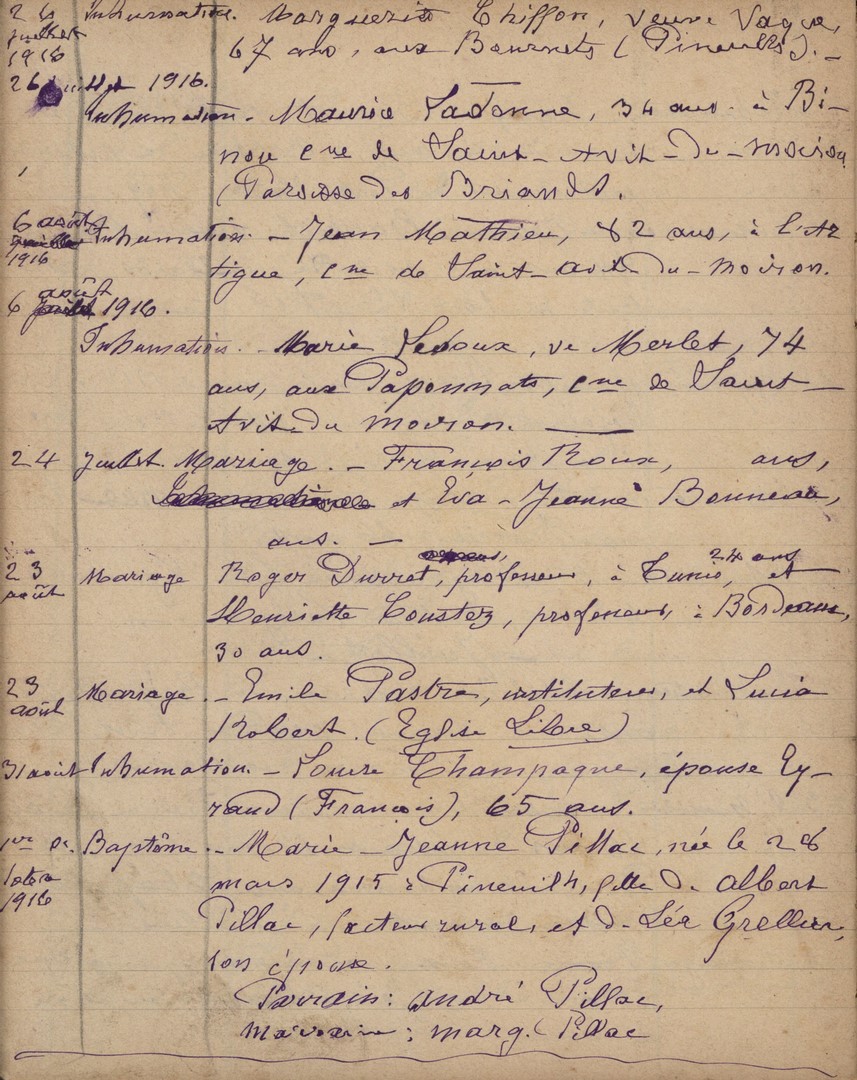 26 Inhumation. Marguerite Chiffon, veuve Vaque,
juillet
1916 67 ans, aux Bournets (Pineuilh). -
26 juillet 1916.
Inhumation. - Maurice Ladonne, 34 ans à Bi-
nou cne de Saint-Avit-du-moiron
(Paroisse des Briands.
6 août Inhumation. - Jean Mathieu, 82 ans, à l'Ar
1916 tigue, cne de Saint-Avit-du-moiron.
août
6 juillet 1916.
Inhumation. - Marie Ledoux, ve Merlet, 74
ans, aux Paponnats, cne de Saint-
Avit-du moiron. —
24 Juillet. Mariage. - François Roux, ans,
et Eva-Jeanne Bonneau,
ans. —
23 août Mariage Roger Durret, professeur, à Tunis, 24 ans et
Henriette Coustez, professeur, à Bordeaux,
30 ans.
23 août Mariage. - Emile Pastre, instituteur, et Lucia
Robert. (Eglise Libre)
31 août Inhumation. - Louise Champagne, épouse Ey-
raud (François), 65 ans.
1er Oc Baptême. - Marie-Jeanne Pillac, née le 28
tobre mars 1915 à Pineuilh, fille de Albert
1916
Pillac, facteur rural, et de Léa Grellier,
son épouse.
Parrain: André Pillac,
Marraine: Marg. Pillac